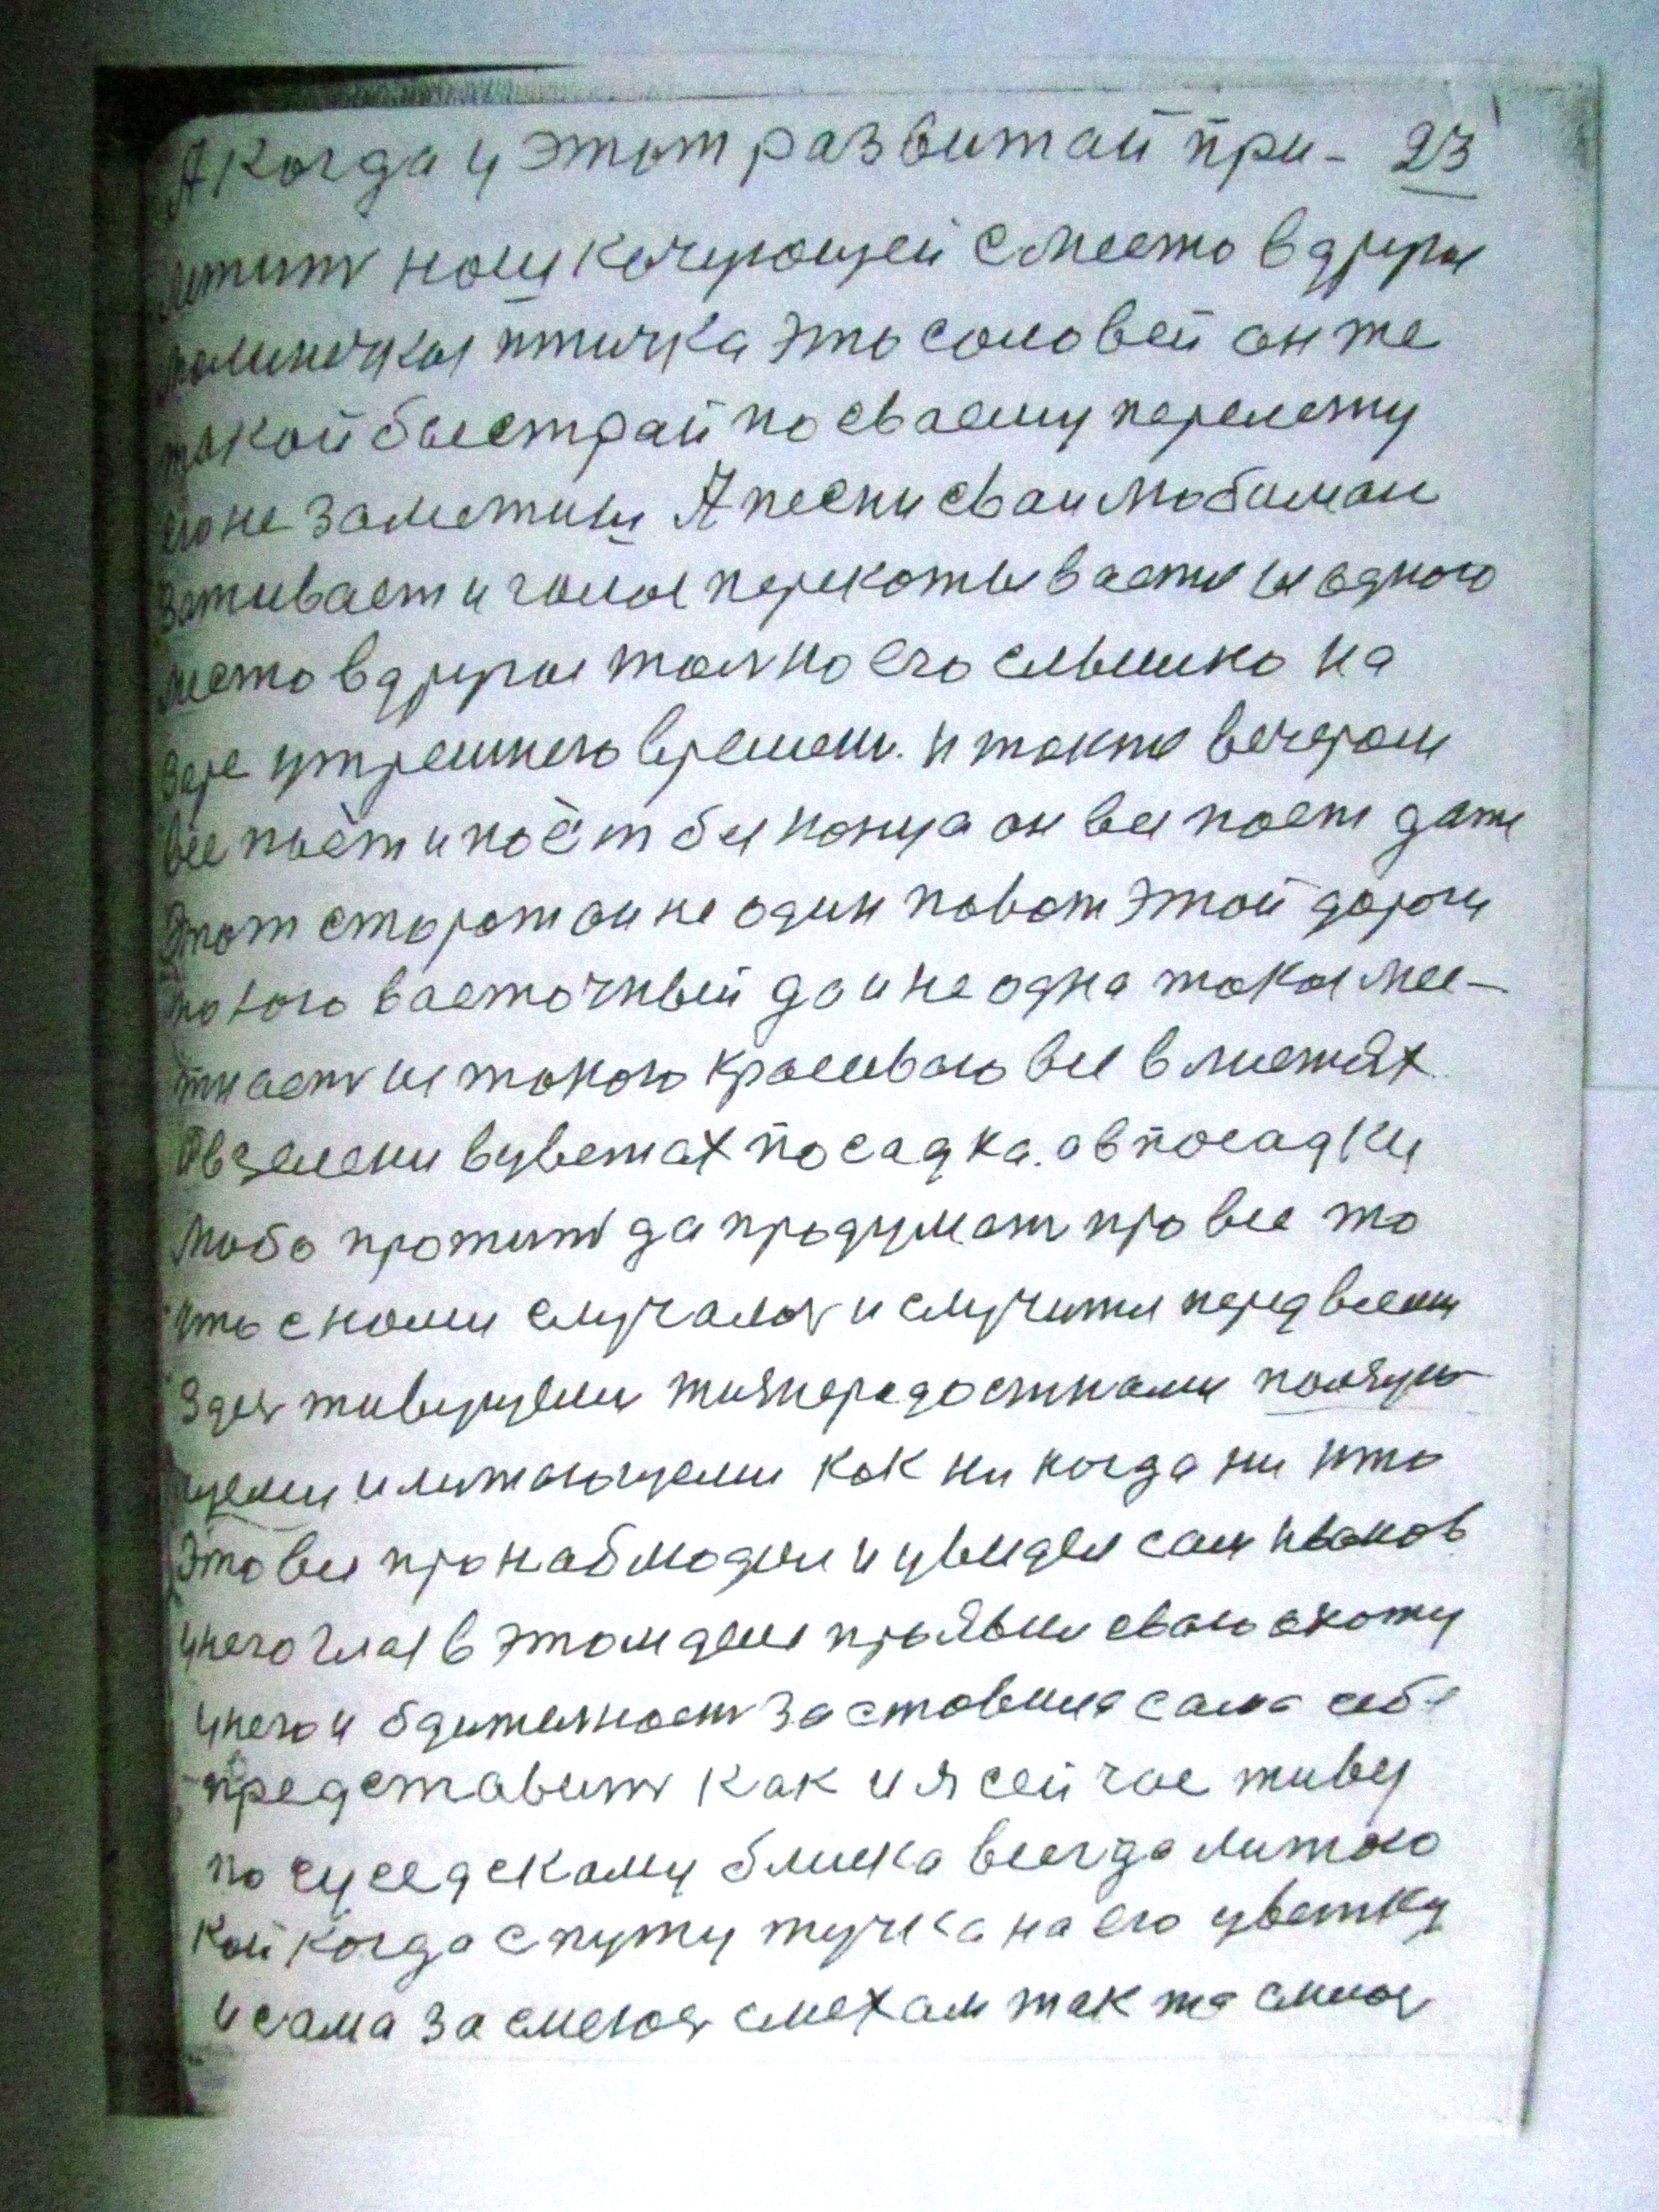 А когда у этот развитай при- 23
летит нош кочующей с место в другое
малинечкоя птичка это соловей он же
такой быстрай по сваему перелету
его не заметиш А песни сваи любимаи
запивает и голос перекотывается из одного
место в другое толко его слышико на
заре утрешнего времени. и такжа вечером
все поёт и поёт без конца он все поет даже
этот сторожаи не один поват этой дороги
такого васточный да и не одна такая мес-
тност из такого красиваго все в листях
в зелени в цветах посадка. а в посадки
любо прожит да продумат про все то
што с нами случалос и случится перед всеми
здес живущеми жизнерадостнами ползую-
щеми и литающеми как ни когда ни што
это все пронаблюдал и увидел сам Иванов
у него глаз в этом деле проявил сваю охоту
у него и бдителност заставила сама себе
представит как и я сейчас живу
по суседскому блиска всегда литаю
кой когда с путу жучка на его цветку
и сама засмеюс смехам так жа смиюс